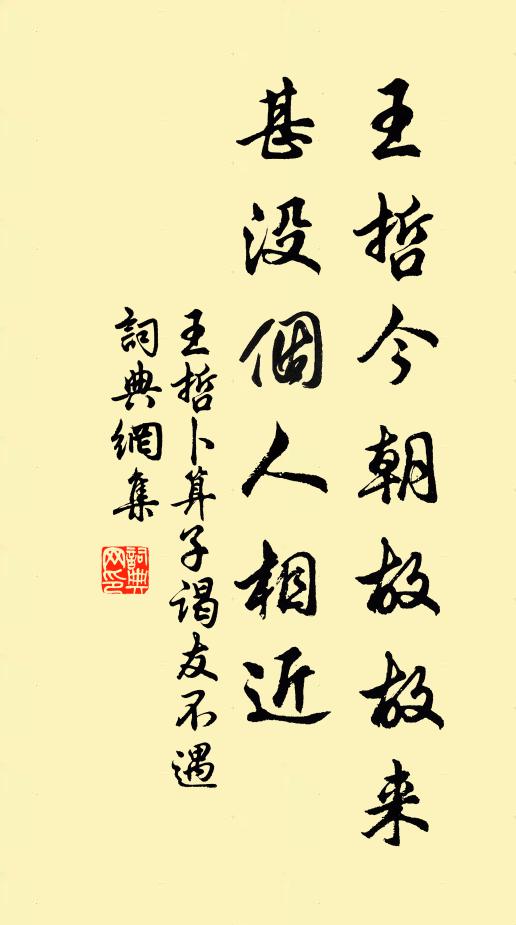 王哲今朝故故来
甚没個人相近
王哲卜算子谒友不遇
詞典網集
詞典
网印